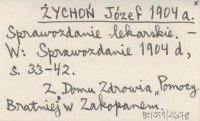 ŻYCHOŃ Józef 1904 a.
Sprawozdanie lekarskie. –
W: Sprawozdanie 1904 d,
s. 33-42.
Z Domu Zdrowia „Pomocy
Bratniej” w Zakopanem.